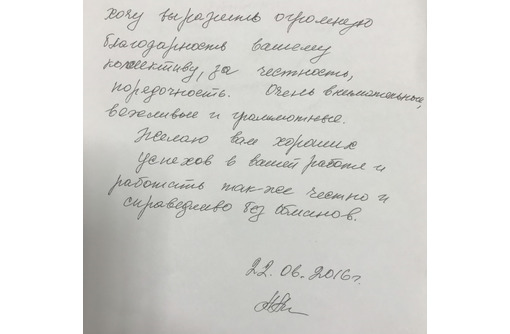 хочу выразить огромную
благодарность вашему
коллективу, за честность,
порядочность. Очень внимательные,
вежливые и грамотные.
Желаю вам хороших
успехов в вашей работе и
работать так-же честно и
справедливо без обманов.
22.06.2016г.